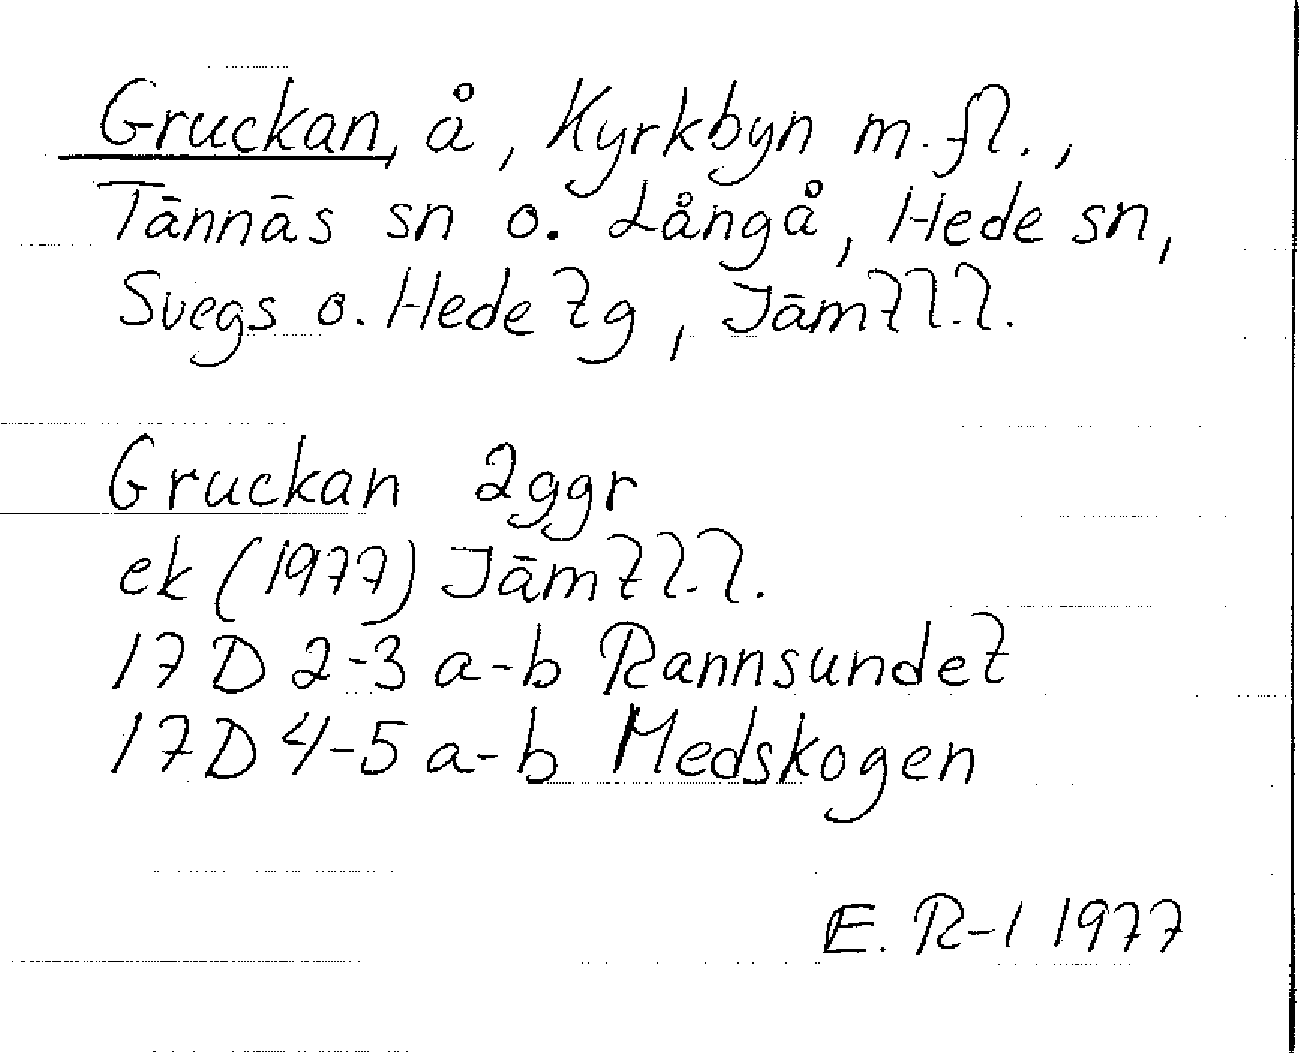 Gruckan, å, Kyrkbyn m.fl.,
Tännäs sn o. Långå, Hede sn,
Svegs o. Hede tg, Jämtl.l.
Gruckan 2ggr
ek (1977) Jämtl.l.
17D 2-3 a-b Rannsundet
17D 4-5 a-b Medskogen
E. R-l 1977